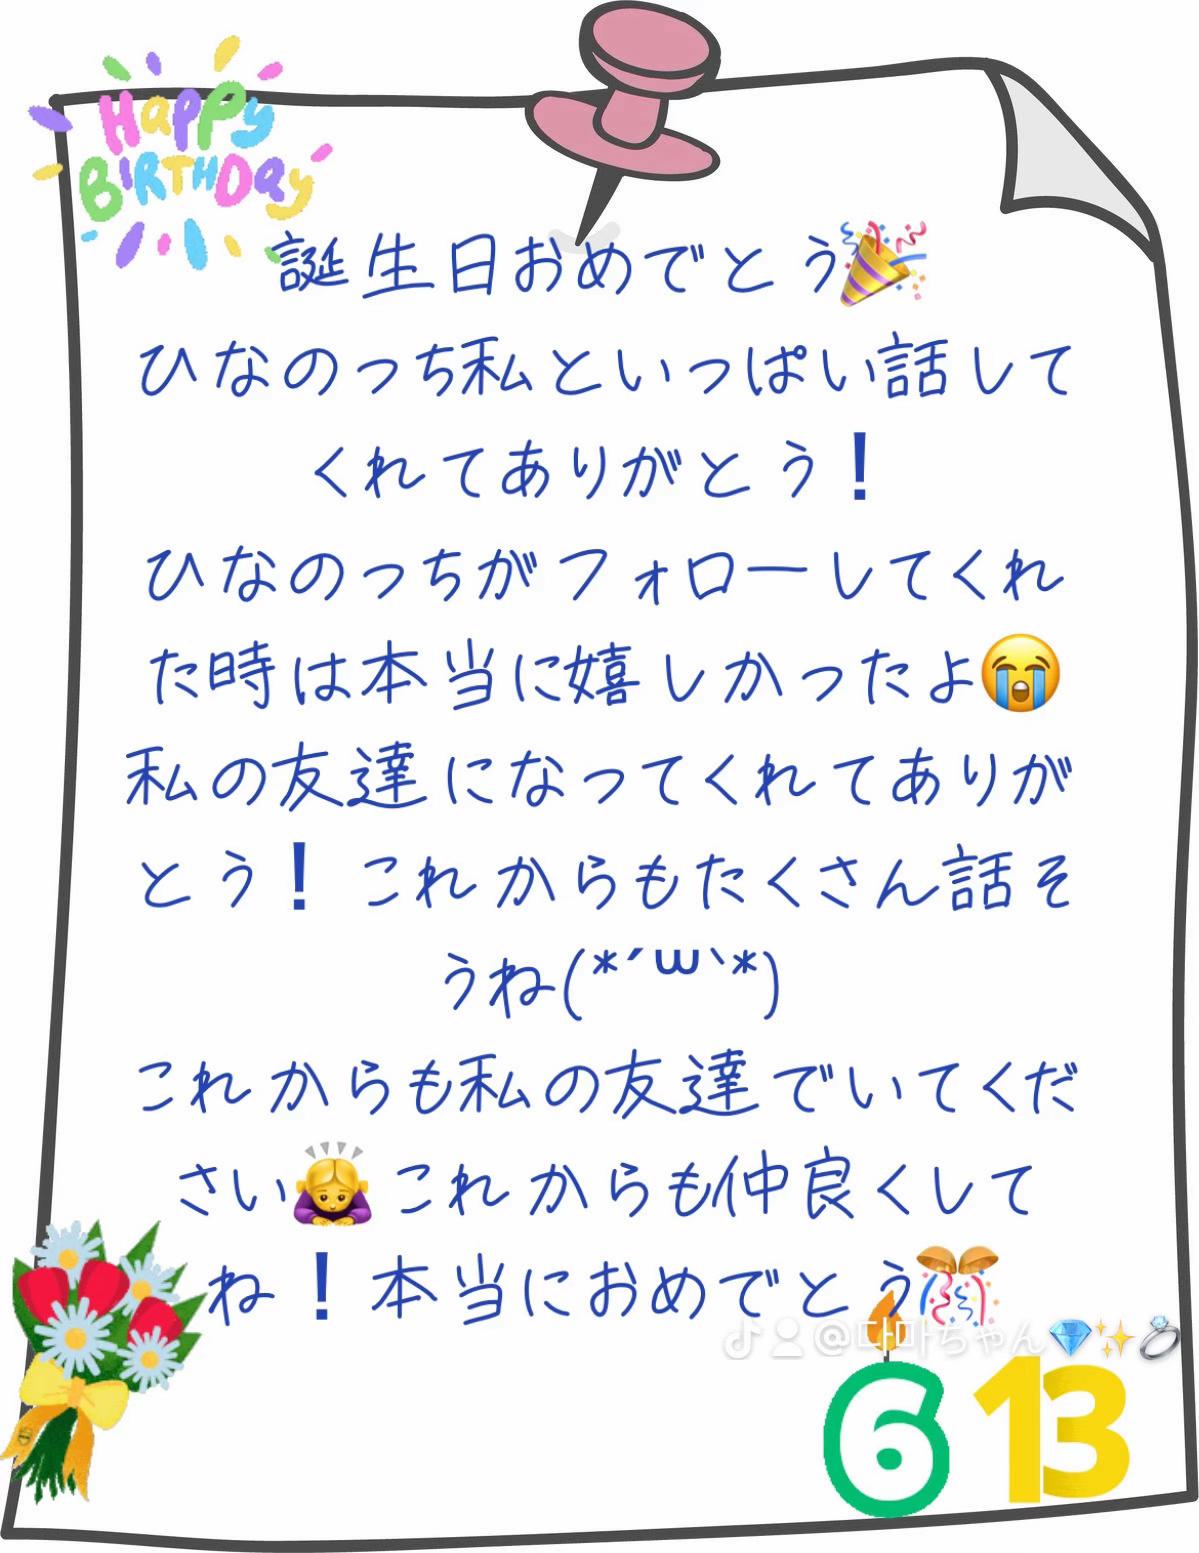 HAPPY
BIRTHDAY
誕生日おめでとう🎉
ひなのっち私といっぱい話して
くれてありがとう❗
ひなのっちがフォローしてくれ
た時は本当に嬉しかったよ😭
私の友達になってくれてありが
とう❗これからもたくさん話そ
うね(*´꒳`*)
これからも私の友達でいてくだ
さい🙇‍♀️これからも仲良くして
ね❗本当におめでとう🎊
@다마ちゃん💎✨💍
6 13